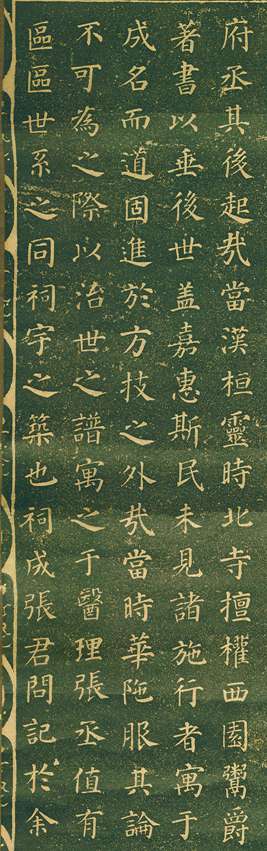 府丞其後起㢤當漢桓靈時北寺擅權西園鬻爵
著書以垂後世盖嘉惠斯民未見諸施行者寓于
成名而道固進於方技之外㢤當時華陁服其論
不可為之際以治世之譜寓之于醫理張丞值有
區區世系之同祠宇之築也祠成張君問記於余